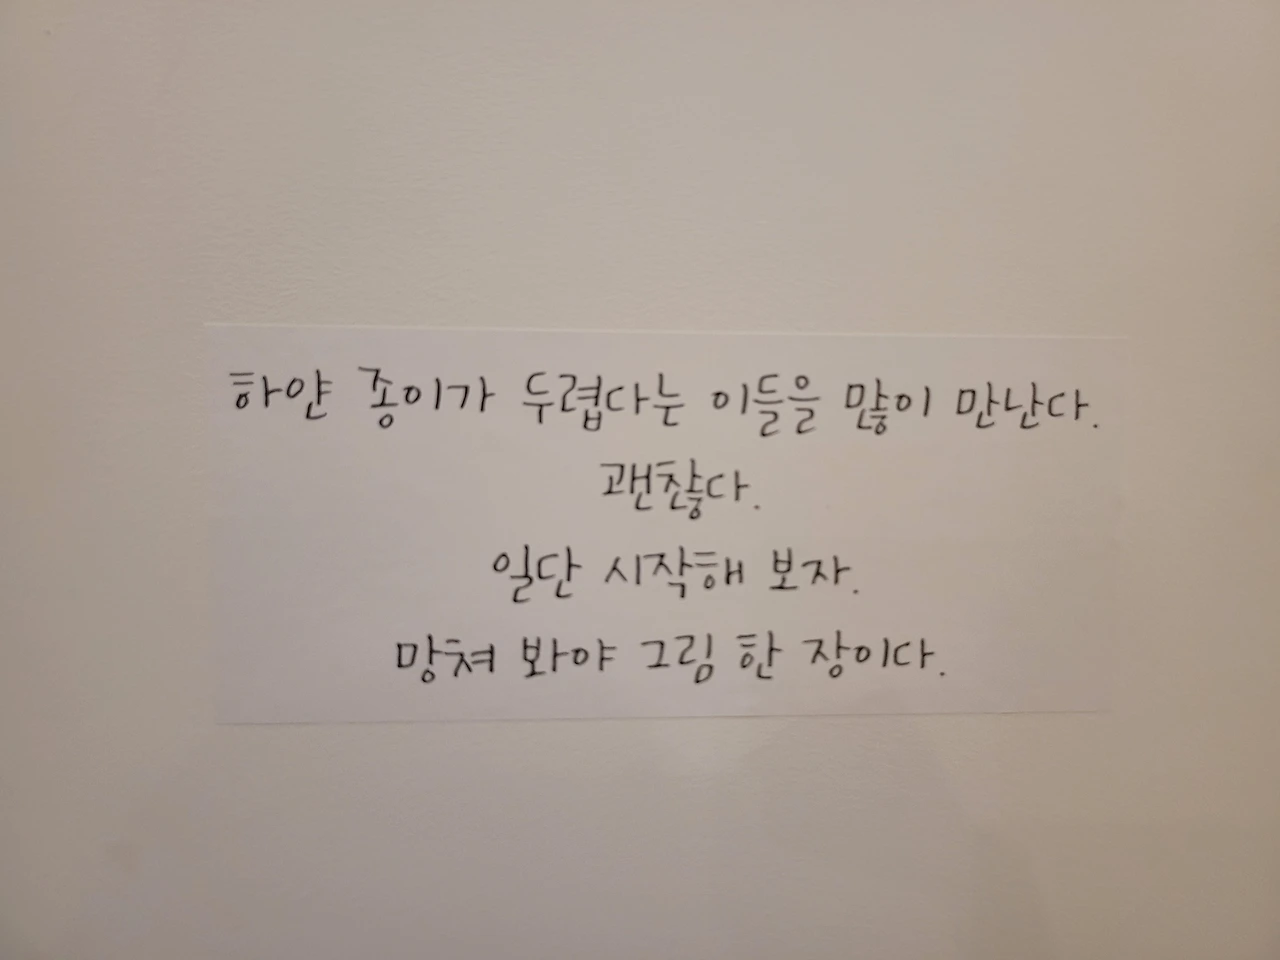 하얀 종이가 두렵다는 이들을 많이 만난다.
괜찮다.
일단 시작해 보자.
망쳐 봐야 그림 한 장이다.